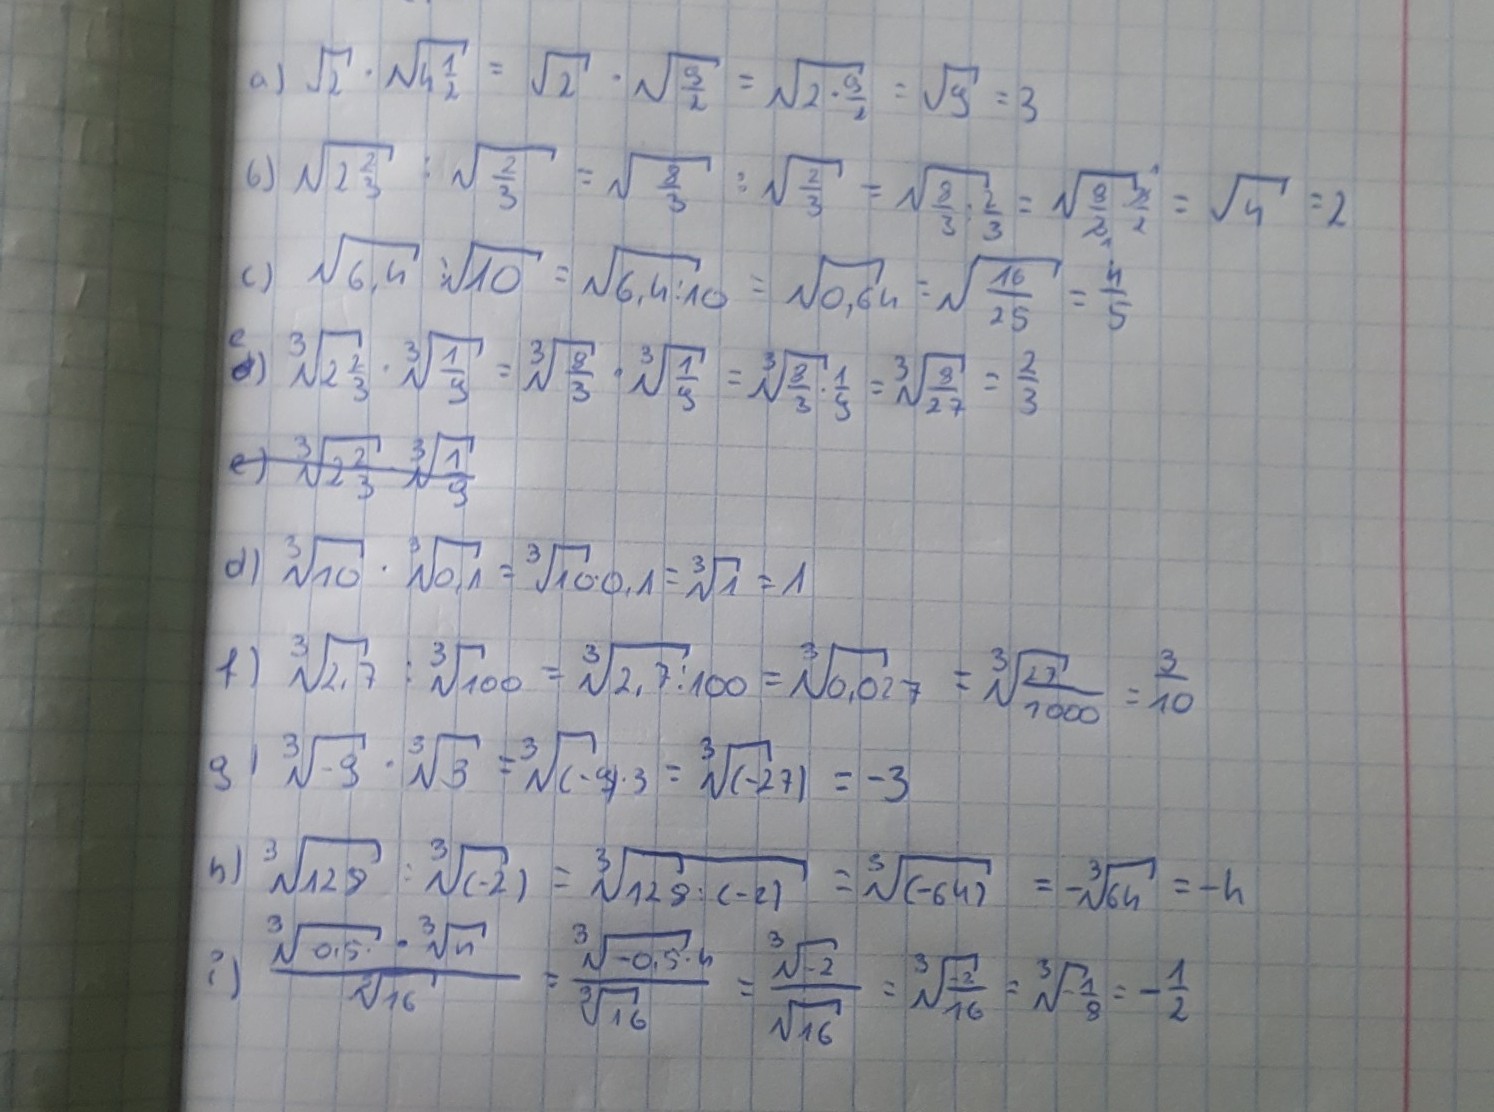 a) √2 · √4 1/2 = √2 · √9/2 = √2 · 9/2 = √9 = 3
b) √2 2/3 : √2/3 = √8/3 : √2/3 = √8/3 : 2/3 = √8/3 · 3/2 = √4 = 2
c) √6,4 : √10 = √6,4:10 = √0,64 = √16/25 = 4/5
e) ³√2 2/3 · ³√1/9 = ³√8/3 · ³√1/9 = ³√8/3 · 1/9 = ³√8/27 = 2/3
e) ³√2 2/3 ³√1/9
d) ³√10 · ³√0,1 = ³√10·0,1 = ³√1 = 1
f) ³√2,7 : ³√100 = ³√2,7:100 = ³√0,027 = ³√27/1000 = 3/10
g) ³√-9 · ³√3 = ³√(-9)·3 = ³√(-27) = -3
h) ³√128 : ³√(-2) = ³√128:(-2) = ³√(-64) = -³√64 = -4
i) ³√-0,5 · ³√4 / √16 = ³√-0,5·4 / ³√16 = ³√-2 / √16 = ³√-2/16 = ³√-1/8 = -1/2